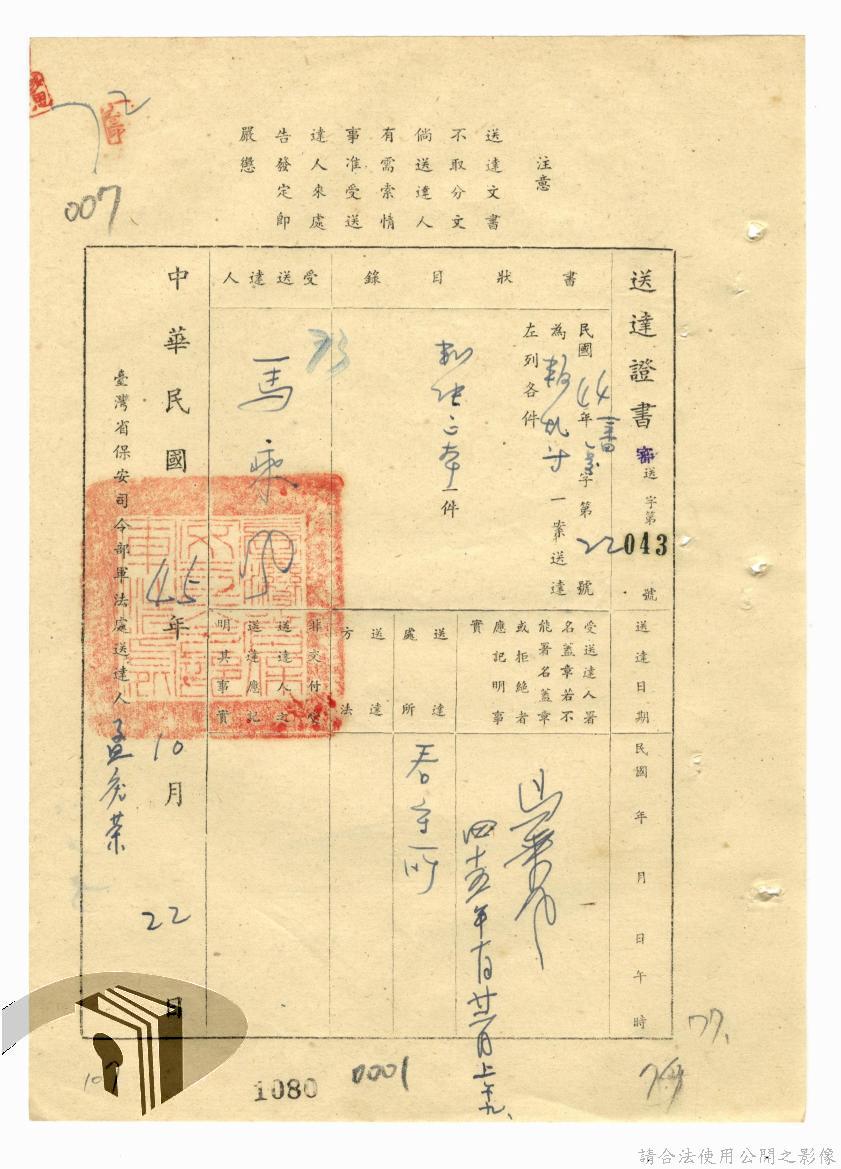 007
注意
送達文書
不取分文
倘送達人
有需索情
事准受送
達人來處
告發定即
嚴懲
送達證書
審送字第043號
書狀目錄
民國44年審字第22號
為叛亂一案送達
左列各件
判決正本一件
受送達人
馬乘
送達日期
民國 年 月 日午 時
受送達人署
名蓋章若不
能署名蓋章
或拒絕者
應記明事
實
四十五年十月廿二日上午九、
送達處所
看守所
送達方法
非交付受
送達人之
送達應記
明其事實
中華民國45年10月22日
臺灣省保安司令部軍法處送達人 孟
77.
107
1080
0001
請合法使用公開之影像